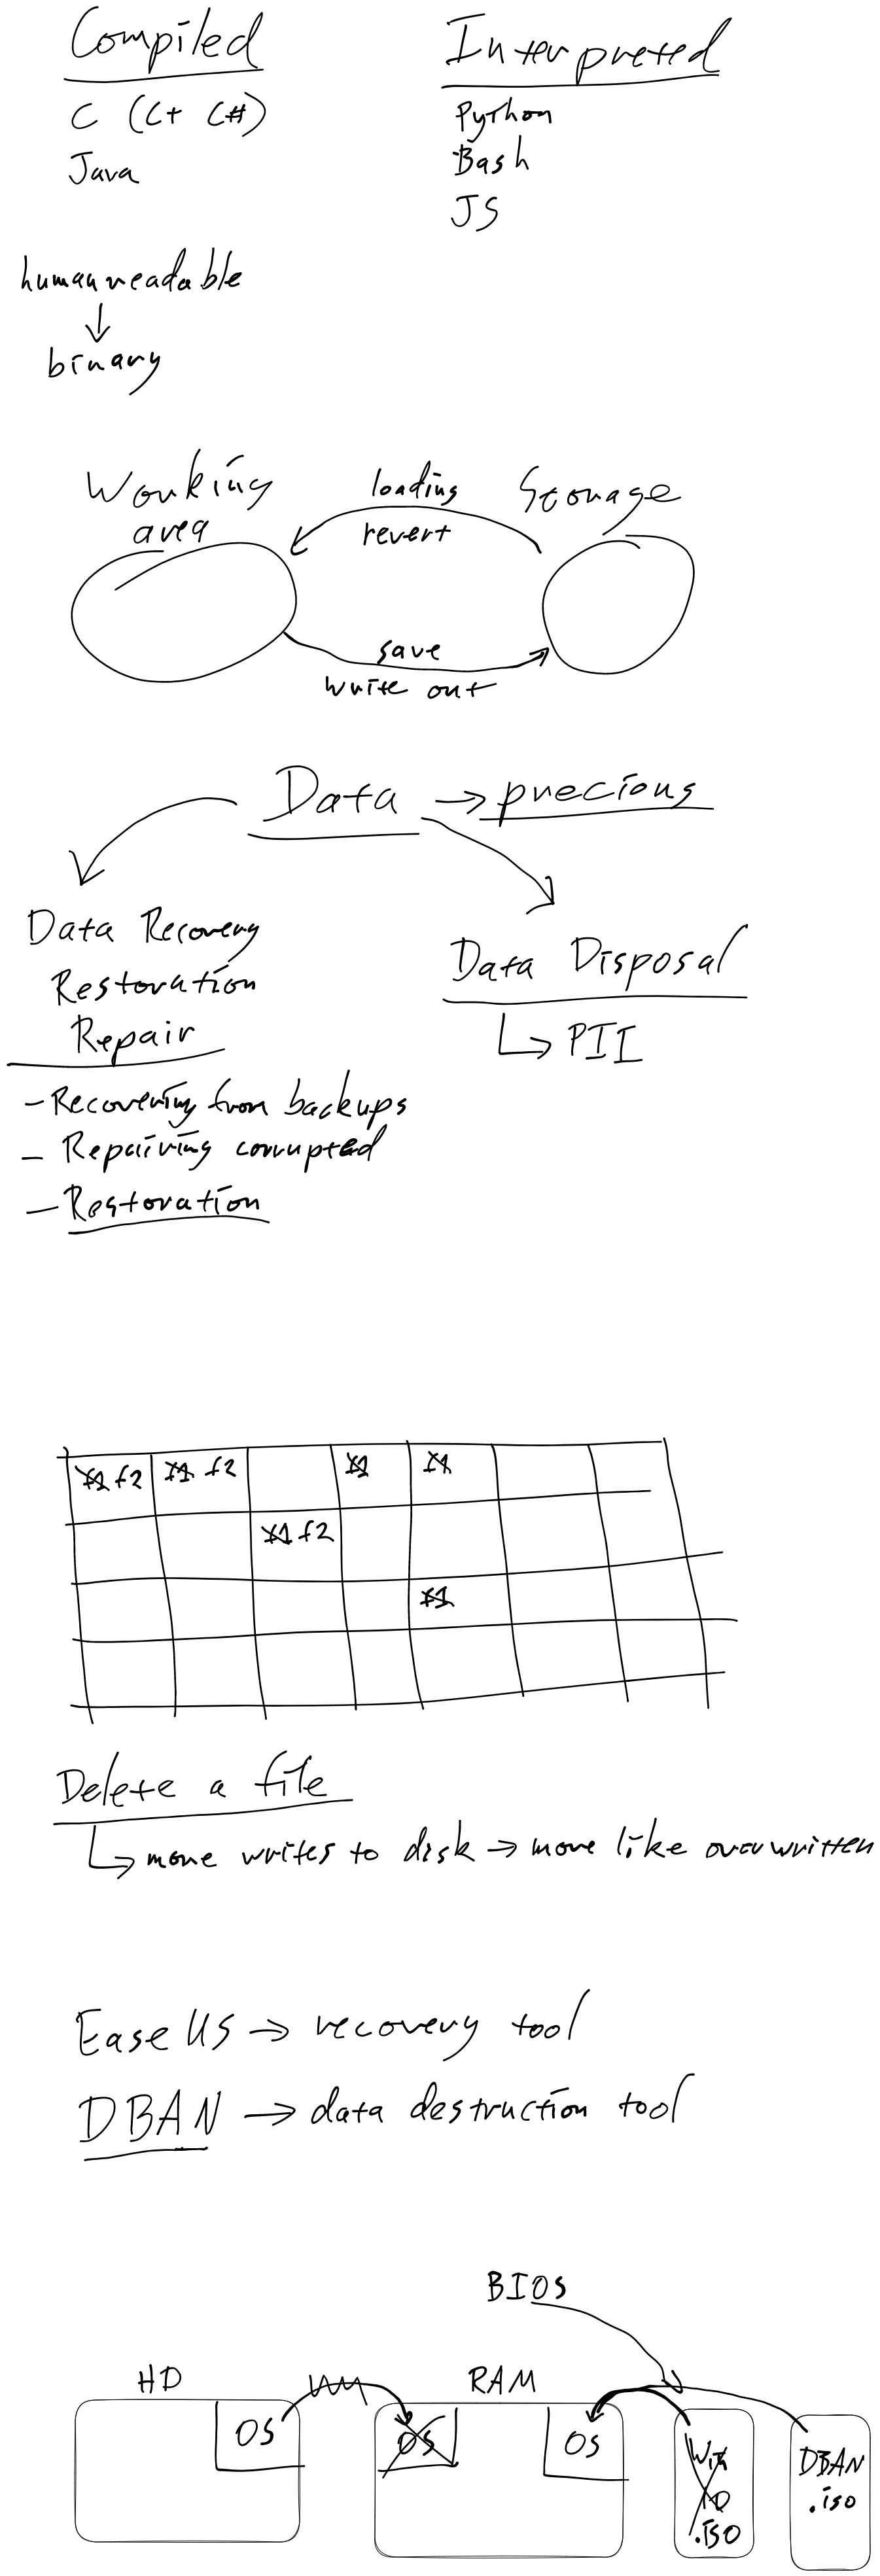 Compiled
Interpreted
C (C+ C#)
Python
Java
Bash
JS
human readable
↓
binary
Working
area
loading
revert
Storage
save
write out
Data → precious
Data Recovery
Restoration
Repair
Data Disposal
↳ PII
- Recovering from backups
- Repairing corrupted
- Restoration
f1 f2
f1 f2
f1
f1
f1 f2
f1
Delete a file
↳ more writes to disk → more like overwritten
EaseUS → recovery tool
DBAN → data destruction tool
BIOS
HD
RAM
OS
OS
OS
Win
10
.iso
DBAN
.iso